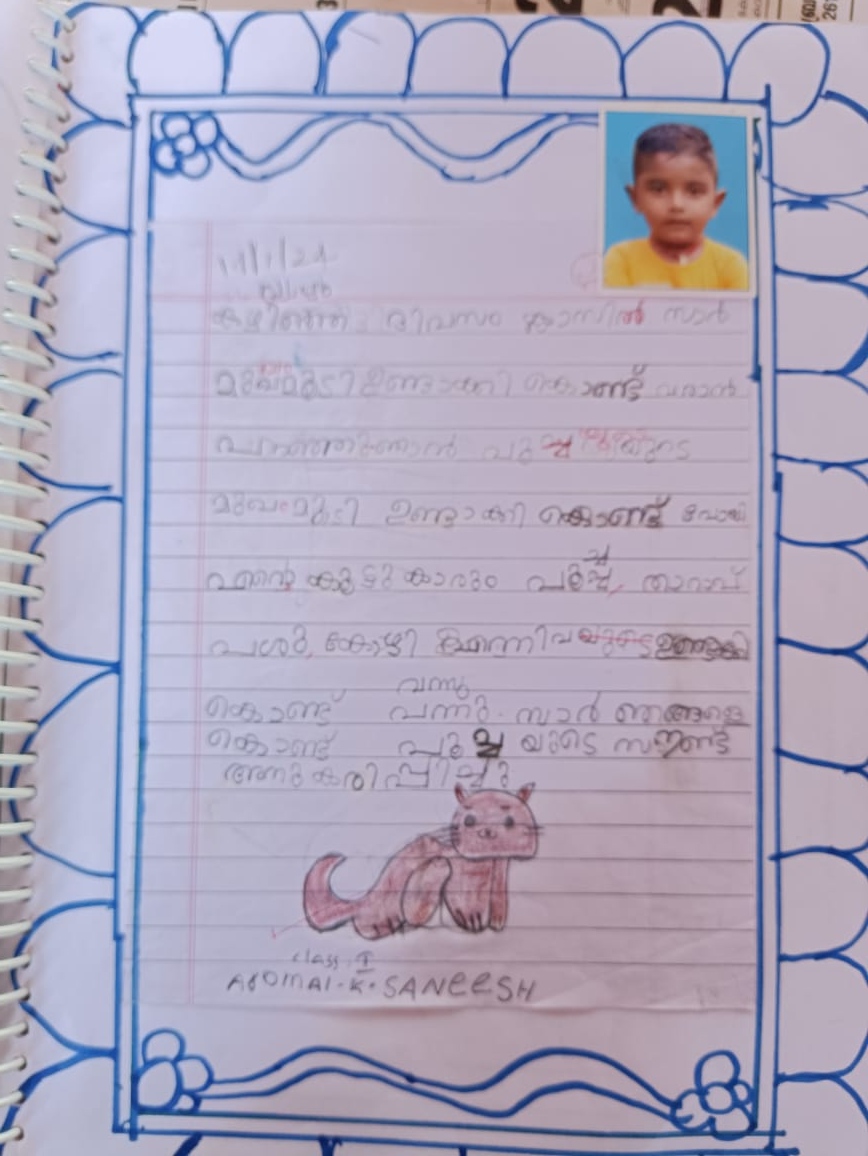 കഴിഞ്ഞ ദിവസം ക്ലാസിൽ സാർ
മുഖംമൂടി ഉണ്ടാക്കി കൊണ്ട് വരാൻ
പറഞ്ഞു ഞാൻ പൂച്ചയുടെ
മുഖംമൂടി ഉണ്ടാക്കി കൊണ്ട് പോയി
എന്റെ കൂട്ടുകാരും പൂച്ച, താറാവ്
പശു, കോഴി എന്നിവയുടെ ഉണ്ടാക്കി
വന്നു
കൊണ്ട് വന്നു. സാർ ഞങ്ങളെ
കൊണ്ട് പൂച്ചയുടെ സൗണ്ട്
അനുകരിപ്പിച്ചു
class - I
AROMAL.K.SANEESH